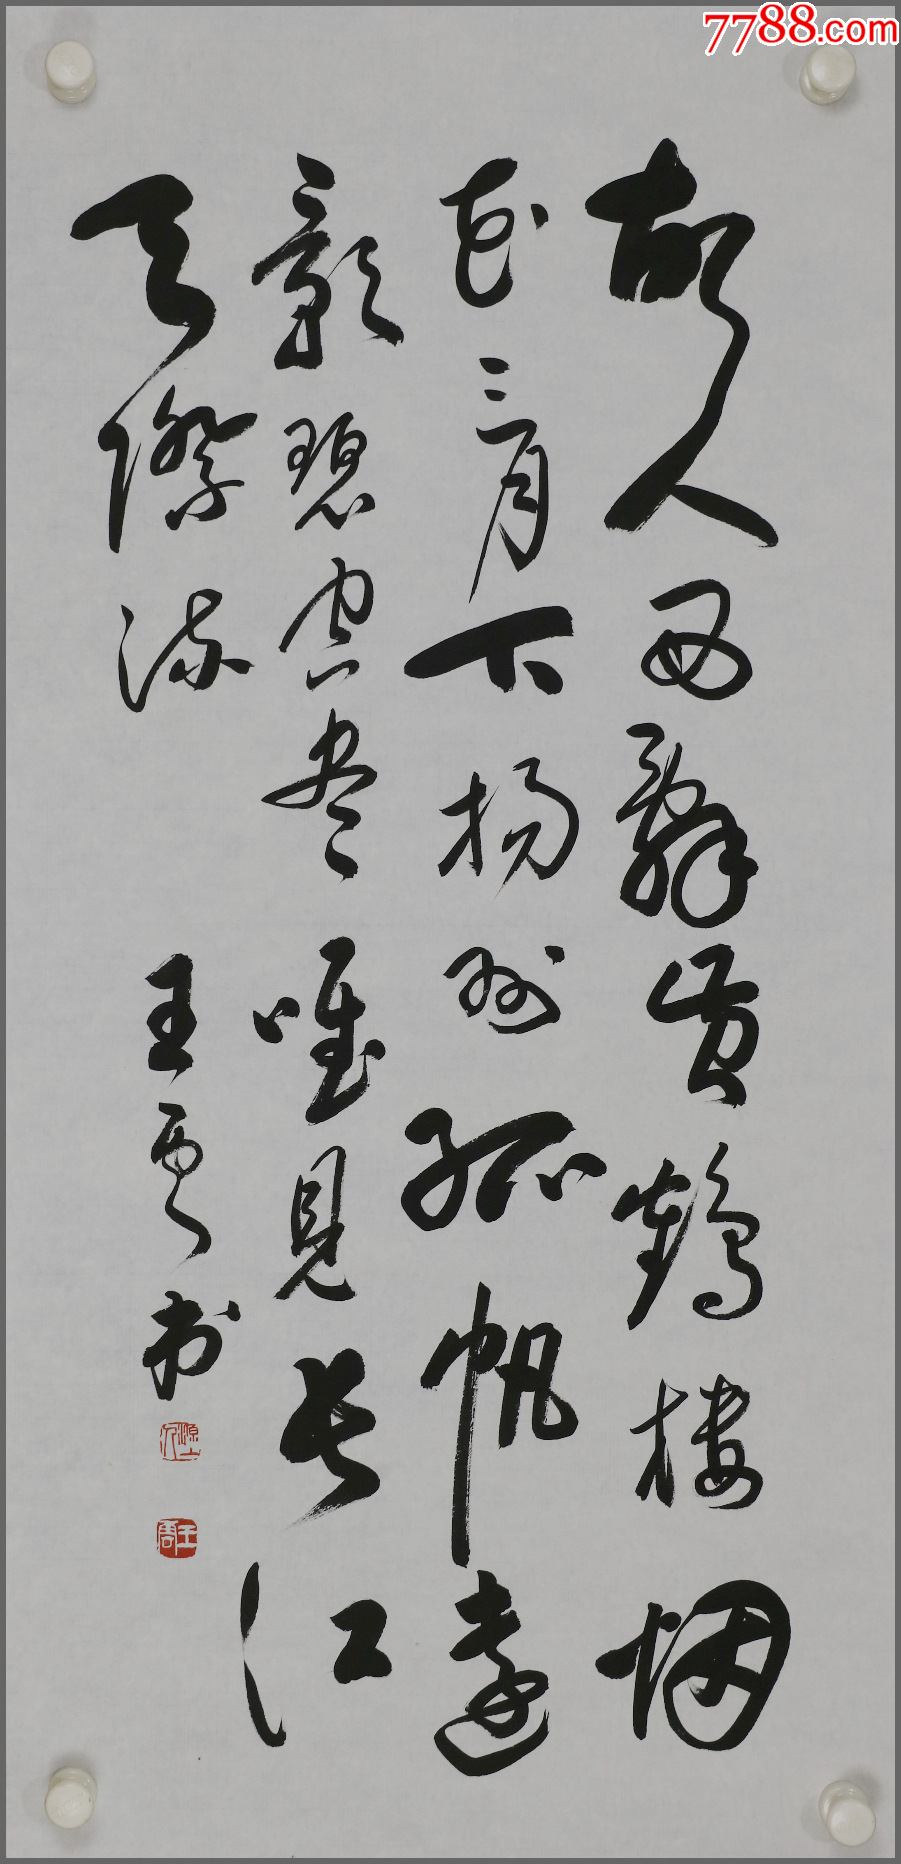 7788.com
故人西辞黄鶴楼烟
花三月下揚州孤帆遠
影碧空尽唯見長江
天際流
王 书